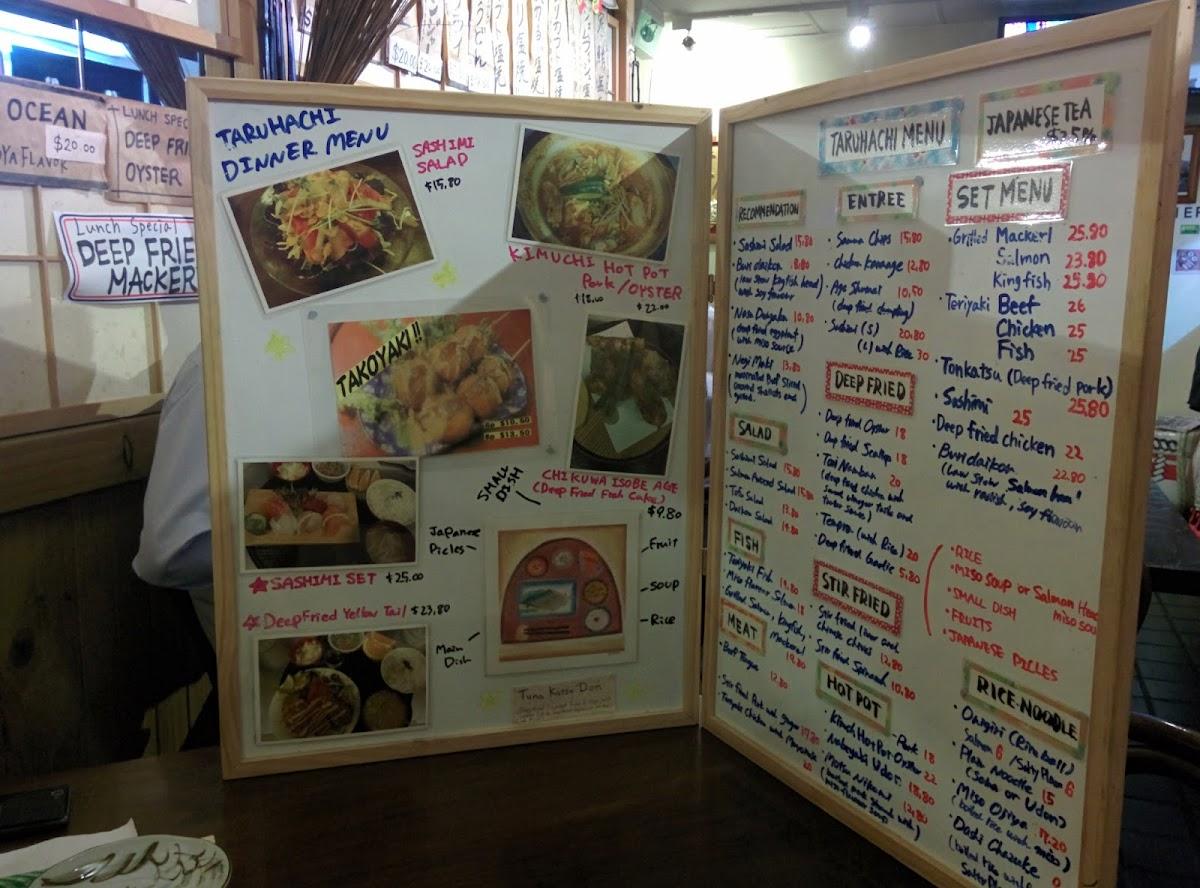 OCEAN
$20.00
YA FLAVOR
LUNCH SPEC
DEEP FRI
OYSTER
Lunch Special
DEEP FRIE
MACKER
TARUHACHI
DINNER MENU
SASHIMI
SALAD
$15.80
KIMUCHI HOT POT
Pork/OYSTER
$18.00
$22.00
TAKOYAKI!!
6p $10.60
8p $13.60
SMALL
DISH
CHIKUWA ISOBE AGE
(Deep Fried Fish Cake)
$9.80
SASHIMI SET $25.00
Deep Fried Yellow Tail $23.80
Japanese
Picles
Fruit
SOUP
Rice
Main
Dish
Tuna Katsu Don
TARUHACHI MENU
JAPANESE TEA
RECOMMENDATION
・Sashimi Salad 15.80
・Buri daikon 18.80
(low stew kingfish head)
with soy flavour
・Nasu Dengaku 10.80
(deep fried eggplant)
with miso source
・Negi Maki 13.80
SALAD
・Sashimi Salad 15.80
・Salmon Avocad Salad 15.80
・Tofu Salad 13.80
・Daikon Salad
FISH
・Teriyaki Fish 19.80
・Miso flavour Salmon 18
・Grilled Salmon, kingfish,
Mackeral 19.80
MEAT
・Beef Tongue 12.80
・Stir fried Pork with ginger 17.80
・Teriyaki Chicken with
ENTREE
10.50
(deep fried dumpling)
・Sashimi (S) 20.80
(L) with Rice 30
DEEP FRIED
・Deep fried Oyster 18
・Deep fried Scallop 18
・Tori Nanban 20
(deep fried chicken with
sweet vinegar taste and
tartar sauce)
・Tempra (with Rice) 20
・Deep fried Garlic 5.80
STIR FRIED
・Stir fried liver and
chinese chives 12.80
・Stir fried Spinach 10.80
HOT POT
・Kimuchi Hot Pot Pork 18
Oyster 22
・Nabeyaki Udon 18.80
・Motsu Nikomi 12.80
SET MENU
・Grilled Mackerl 25.80
Salmon 23.80
Kingfish 25.80
・Teriyaki Beef 26
Chicken 25
Fish 25
・Tonkatsu (Deep fried pork)
25.80
・Sashimi 25
・Deep fried chicken 22
・Buri daikon 22.80
(Low stew Salmon head
with radish, soy flavour
・RICE
・MISO SOUP or Salmon Head
miso sou
・SMALL DISH
・FRUITS
・JAPANESE PICLES
RICE・NOODLE
・Onigiri (Rice ball)
Salmon 6 / Salty Plum 6
・Plain Noodle 15
(Soba or Udon)
・Miso Ojiya 17.20
(boiled rice with miso)
・Dashi Chazuke
(boiled rice with
Salty Pl